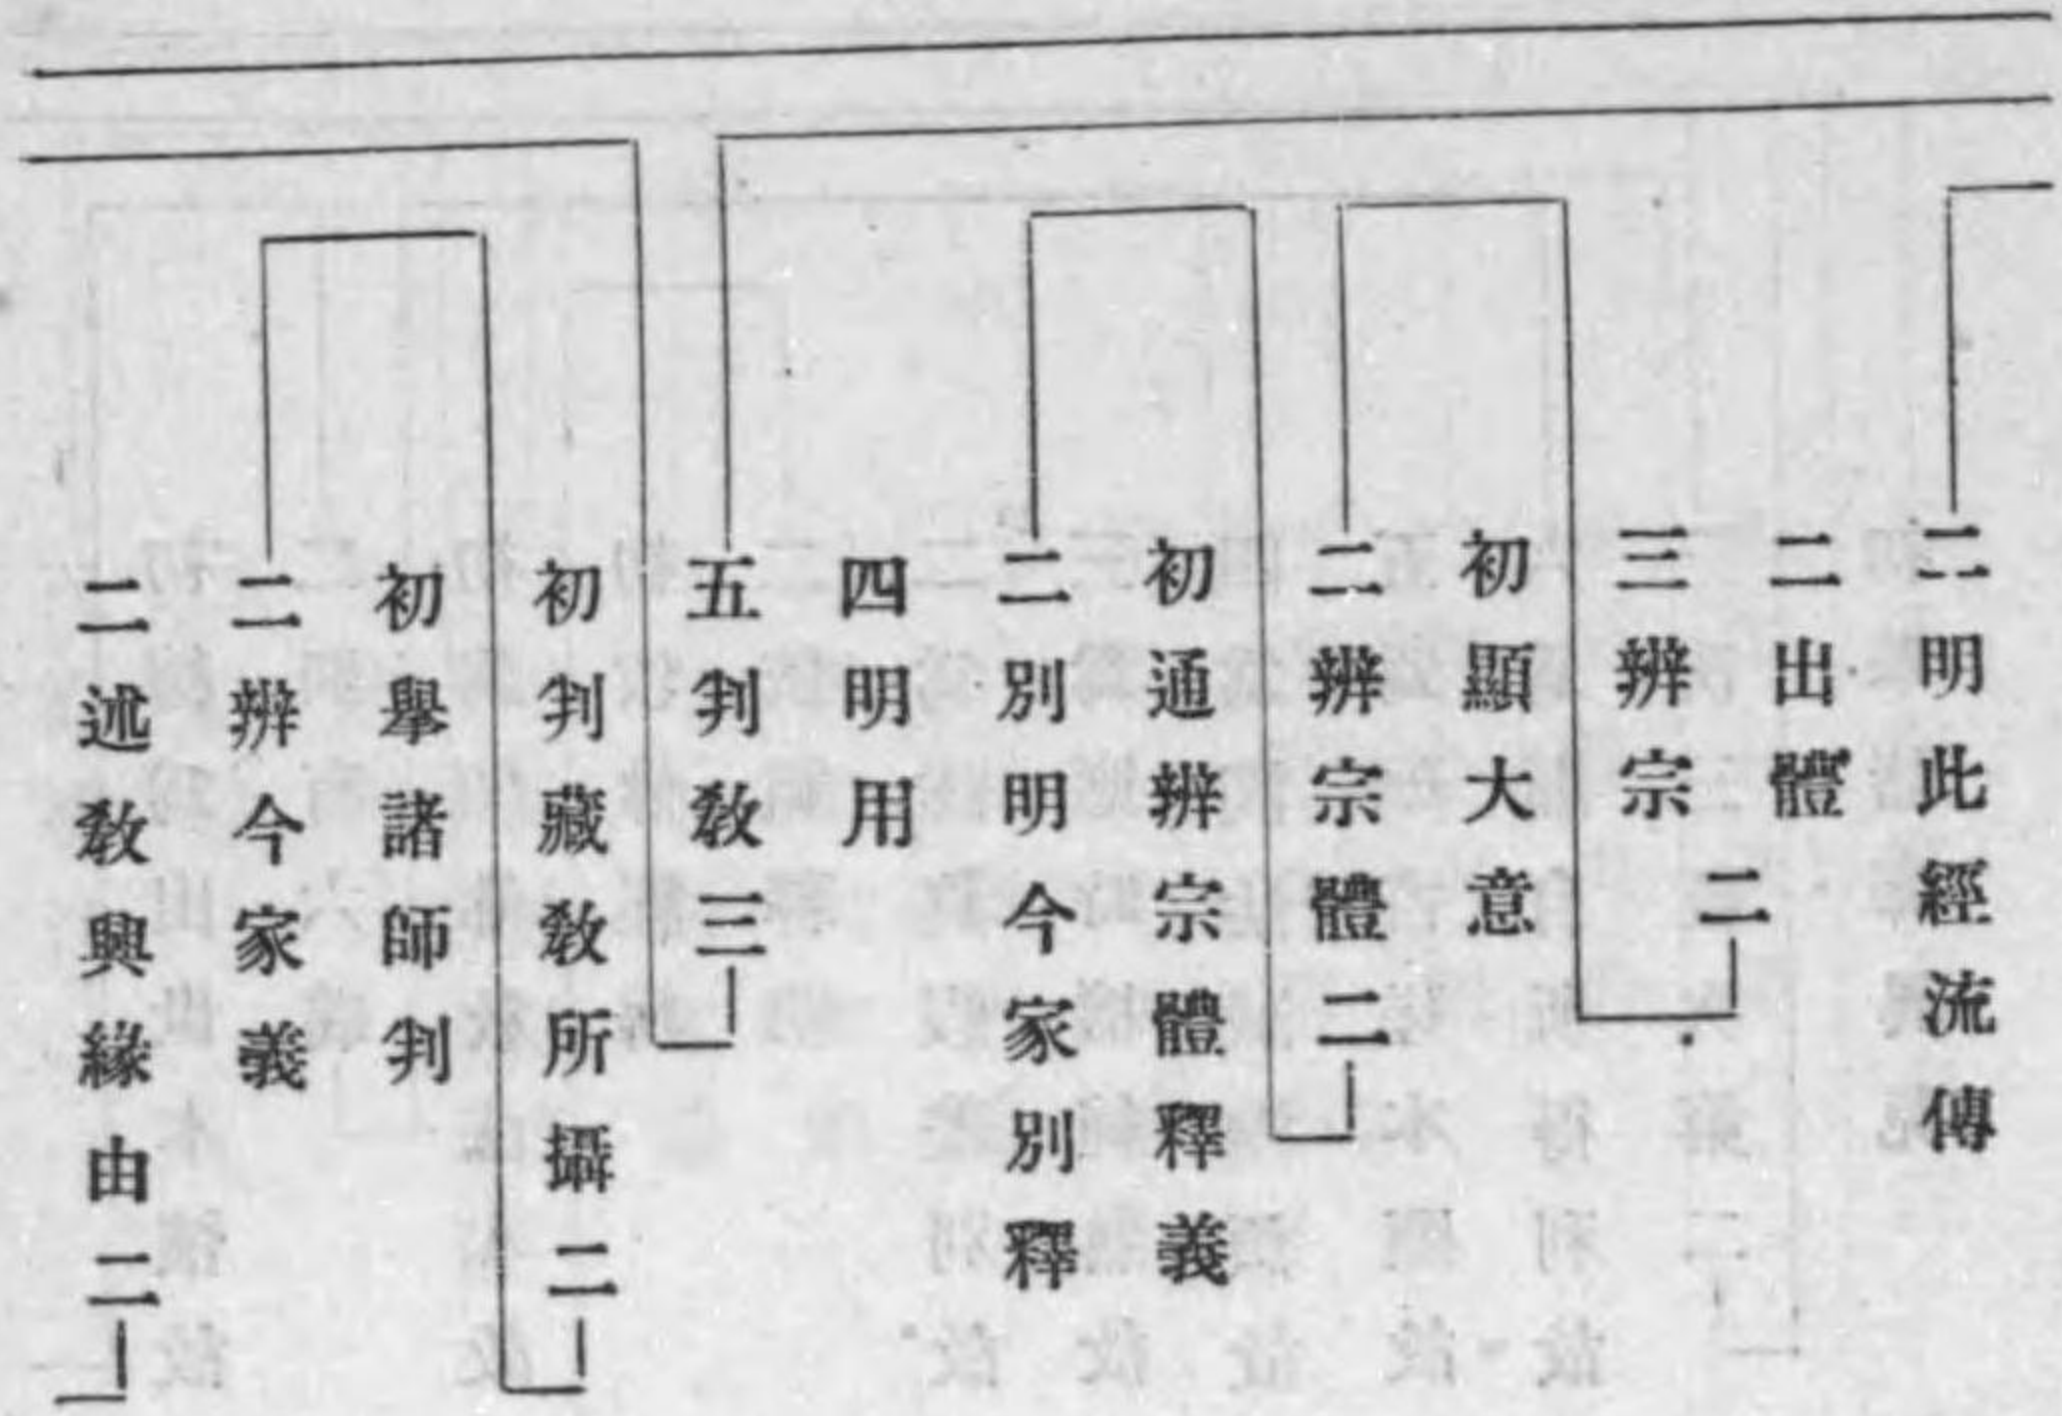 二明此經流傳
二出體
三辨宗二
初顯大意
二辨宗體二
初通辨宗體釋義
二別明今家別釋
四明用
五判教三
初判藏教所攝二
初舉諸師判
二辨今家義
二述教興緣由二